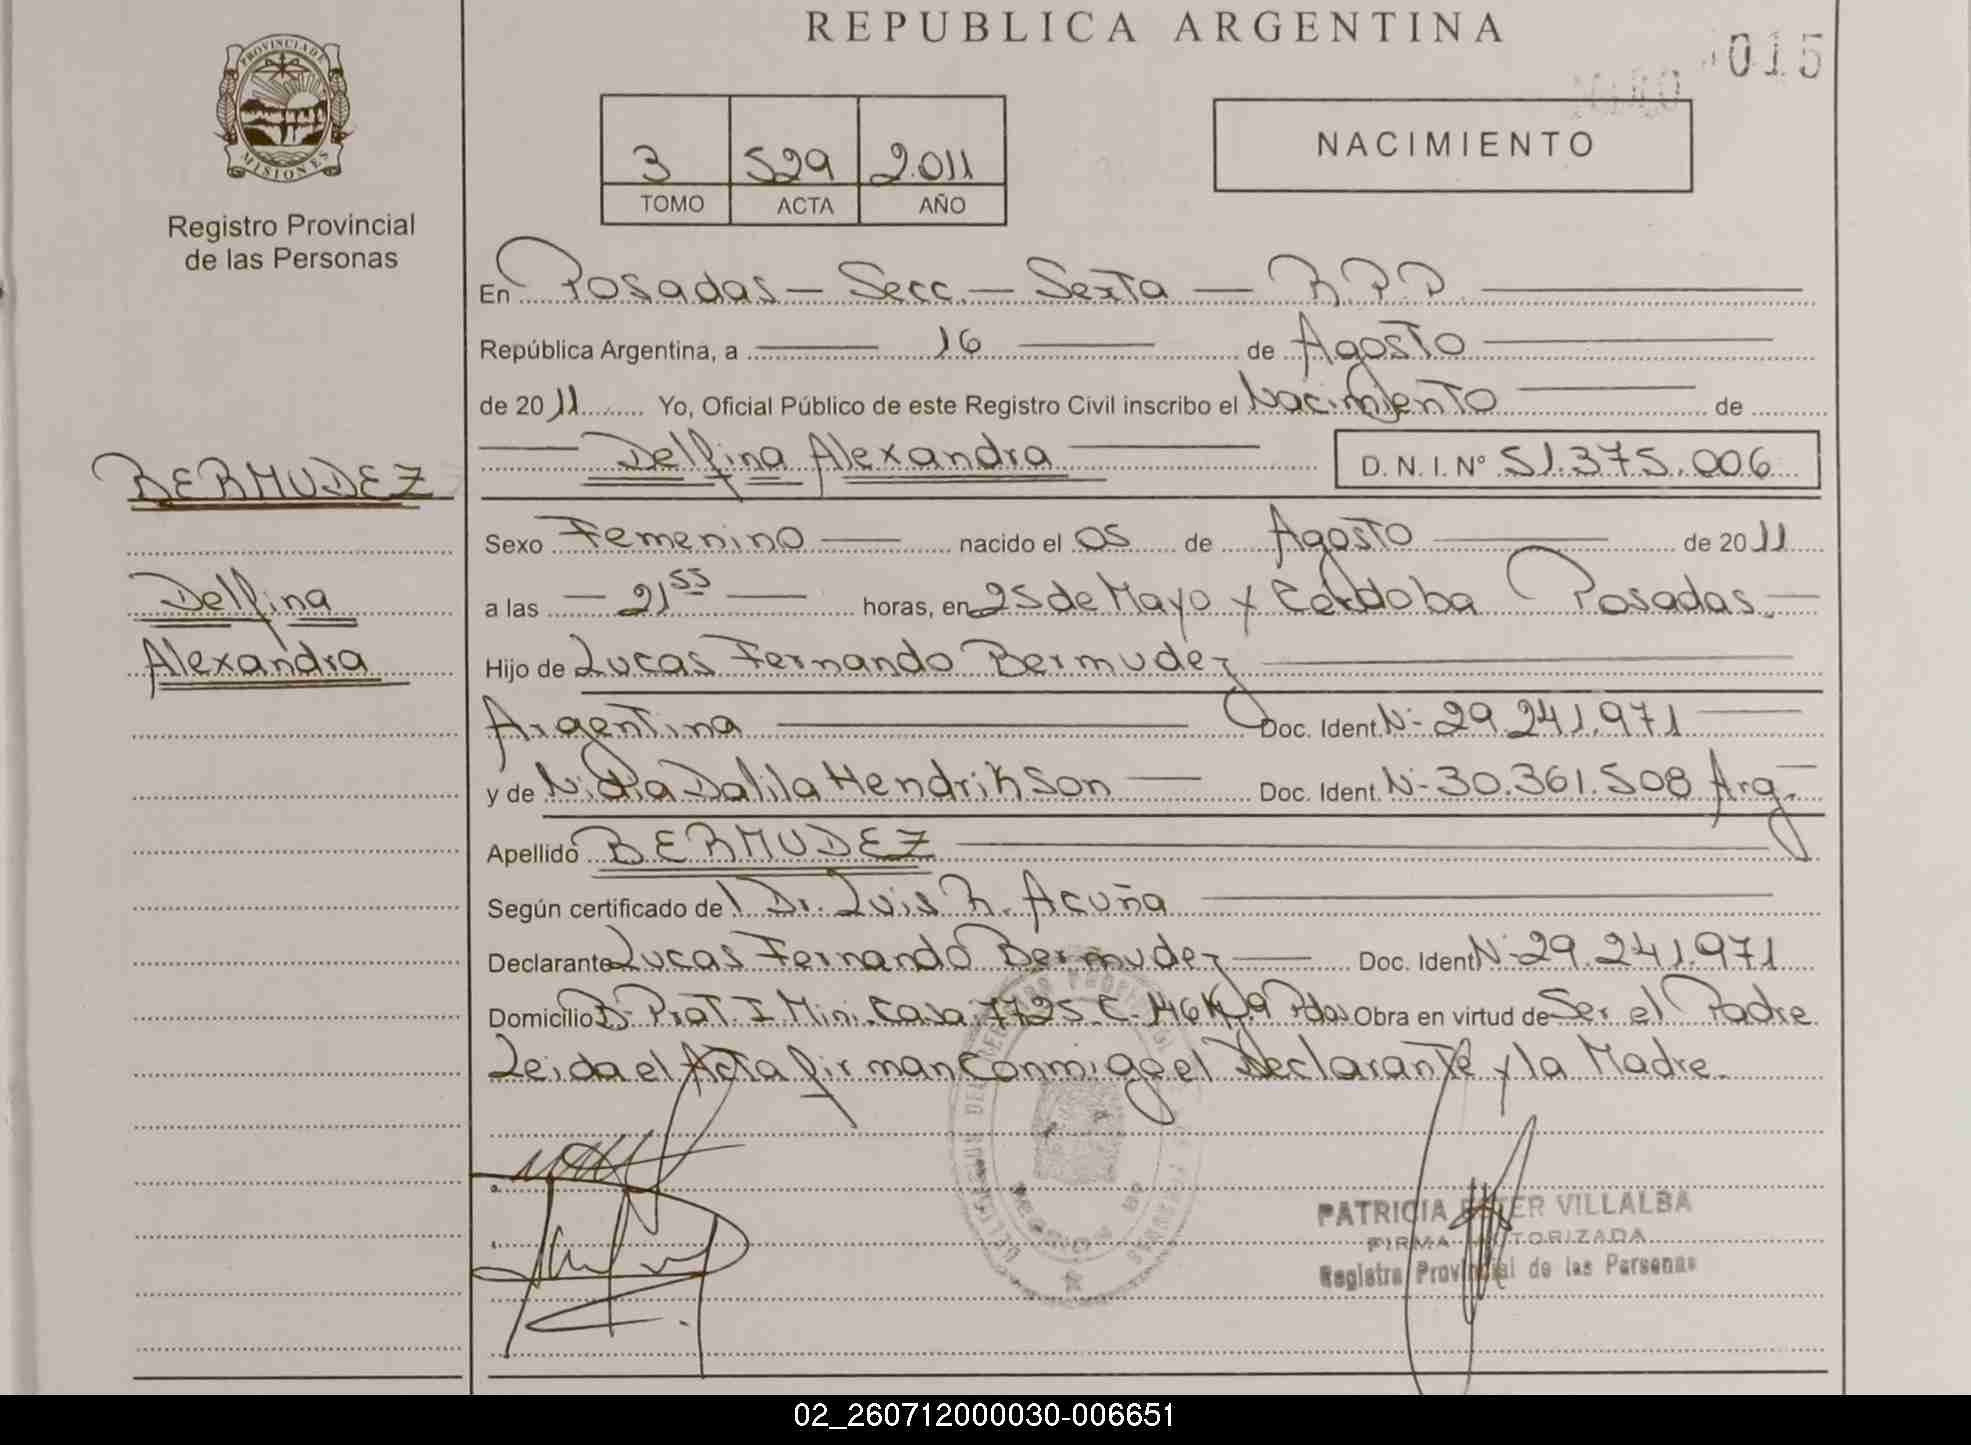 REPUBLICA ARGENTINA
015
PROVINCIA DE
MISIONES
Registro Provincial
de las Personas
3 529 2.011
TOMO ACTA AÑO
NACIMIENTO
En Posadas - Secc. - Sexta - R.P.P.
República Argentina, a 16 de Agosto
de 2011 Yo, Oficial Público de este Registro Civil inscribo el Nacimiento de
Delfina Alexandra D.N.I. Nº 51.375.006
BERMUDEZ
Delfina
Alexandra
Sexo Femenino nacido el 05 de Agosto de 2011
a las 21 55 horas, en 25 de Mayo y Córdoba Posadas.
Hijo de Lucas Fernando Bermudez
Argentina Doc. Ident. N- 29.241.971
y de Nidia Dalila Hendrikson Doc. Ident. N- 30.361.508 Arg.
Apellido BERMUDEZ
Según certificado del Dr. Luis R. Acuña
Declarante Lucas Fernando Bermudez Doc. Ident. N- 29.241.971
Domicilio B- Prat. I Mini. Casa 7725 C- 146 Pdas Obra en virtud de Ser el Padre
Leida el Acta firman Conmigo el Declarante y la Madre.
PATRICIA ESTER VILLALBA
FIRMA AUTORIZADA
Registro Provincial de las Personas
02_260712000030-006651